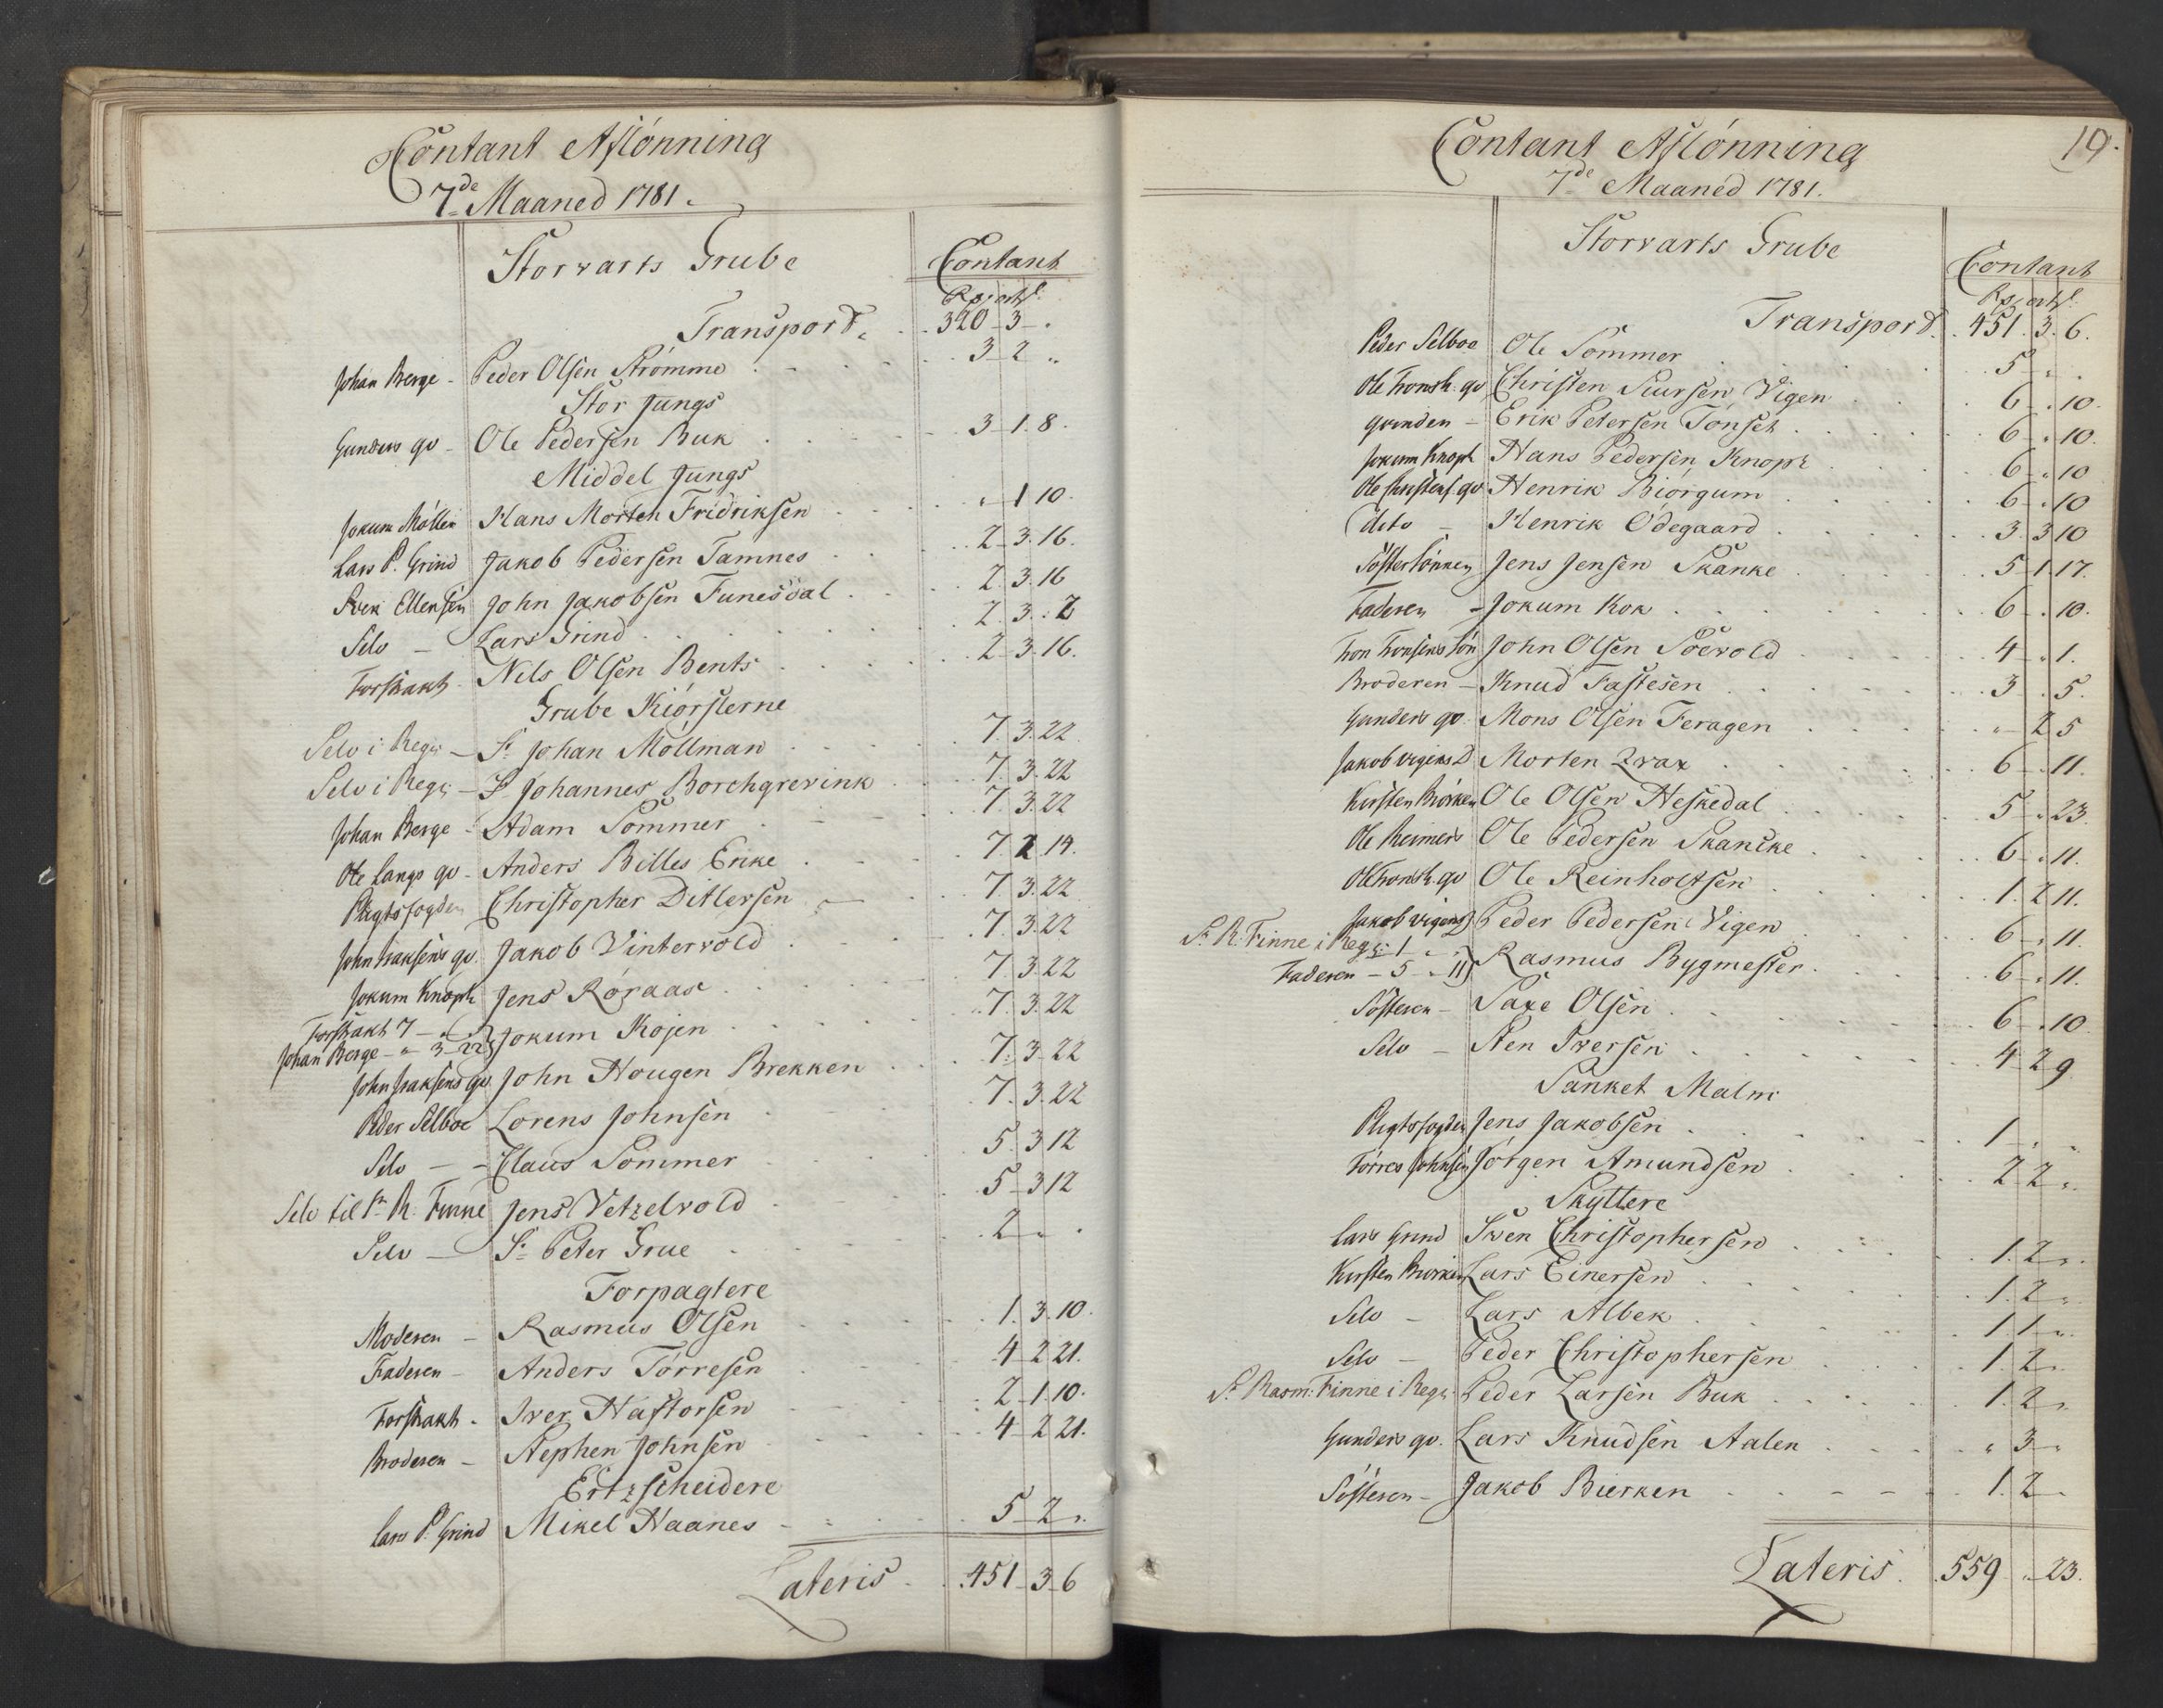 Contant Aflönning
7de Maaned 1781.
Storvarts Grube
Contant
Rp, ort, s.
Transport. 320 - 3 - .
Johan Berge - Peder Olsen Strömme 3 - 2 "
Stor Jungs
Gunders qv - Ole Pedersen Buk 3 - 1. 8.
Middel Jungs
Jokum Möller Hans Morten Fridriksen " 1 10.
Lars P. Grind Jakob Pedersen Tamnes 2 - 3. 16.
Sven Ellensen John Jakobsen Funesdal 2. 3. 16
Selv - Lars Grind 2. 3. 2
Forstrakt - Nils Olsen Bents 2 - 3. 16.
Grube Kiörslerne
Selv i Regn: - Sr. Johan Möllman 7. 3. 22
Selv i Regn: - Sr. Johannes Borchgrevink 7. 3. 22
Johan Berge - Adam Sommer 7. 3. 22
Ole Langs qv - Anders Billes Enke 7. 2. 14.
Pligtsfogden Christopher Ditlevsen 7. 3. 22
John Isaksens qv. Jakob Vintervold 7. 3. 22
Jokum Knoph Jens Röraas 7. 3. 22
Forstrakt 7 - " . "
Johan Berge - " - 3 - 22 } Jokum Kojen 7. 3. 22
John Isaksens qv. John Hougen Brekken 7. 3. 22
Peder Selboe Lorens Johnsen 7. 3. 22
Selv - - Claus Sommer 5. 3 12
Selv til Sr. R. Finne Jens Vetzelvold 5 - 3 12
Selv - Sr. Peter Grue 2 - " .
Forpagtere
Moderen - Rasmus Olsen 1. 3. 10.
Faderen - Anders Torresen 4 - 2 21.
Forstrakt - Iver Hastorsen 2 - 1. 10.
Broderen - Stephen Johnsen 4 - 2 21.
Ertzscheidere
Lars P. Grind Mikel Haanes 5 - 2 ".
Lateris 451 - 3 - 6
19.
Contant Aflönning
7de Maaned 1781.
Storvarts Grube
Contant
Rp, ort, s.
Transport. 451. 3. 6.
Peder Selboe Ole Sommer 5 " .
Ole Tronsh. qv Christen Siursen Vigen 6 - . 10.
qvinden - Erik Petersen Tönset 6 - . 10.
Jokum Knoph Hans Pedersen Knoph 6 - " 10
Ole Christens. qv Henrik Biörgum 6 - . 10
dito - Henrik Ödegaard 3. 3 10
Söstersönnen Jens Jensen Skanke 5. 1. 17.
Faderen - Jokum Kok 6 - . 10.
Tron Tronsens Sön John Olsen Söevold 4 - " 1.
Broderen - Knud Fastesen 3 . 5.
Gunders qv. Mons Olsen Feragen " - 2 5
Jakob Vigens D Morten Qvax 6 - . 11.
Kirsten Biörken Ole Olsen Heskedal 5 - " 23.
Ole Reimers Ole Pedersen Skancke 6 - " 11.
Ole Tronsh. qv Ole Reinholtsen 1. 2 11.
Jakob Vigens D Peder Pedersen Vigen 6 - " 11.
Sr. R. Finne i Regn: 1 - " "
Faderen - 5 - " 11 } Rasmus Bygmester 6 - " 11.
Sösteren - Saxe Olsen 6 - . 10
Selv - Sten Iversen 4 - 2 9
Sanket Malm
Pligtsfogden Jens Jakobsen 1 - " "
Törres Johnsen Jörgen Amundsen 2 2 ".
Skyttere
Lars Grind Sven Christophersen 1. 2 ".
Kirsten Biörken Lars Einersen 1. 2 "
Selv - Lars Albek 1 1 ".
Selv - Peder Christophersen 1. 2 ".
Sr. Rasm: Finne i Regn: Peder Larsen Buk 1. 2 ".
Gunders qv. Lars Knudsen Aalen " 3 "
Sösteren - Jakob Bierken 1. 2 -
Lateris 559 - " 23.